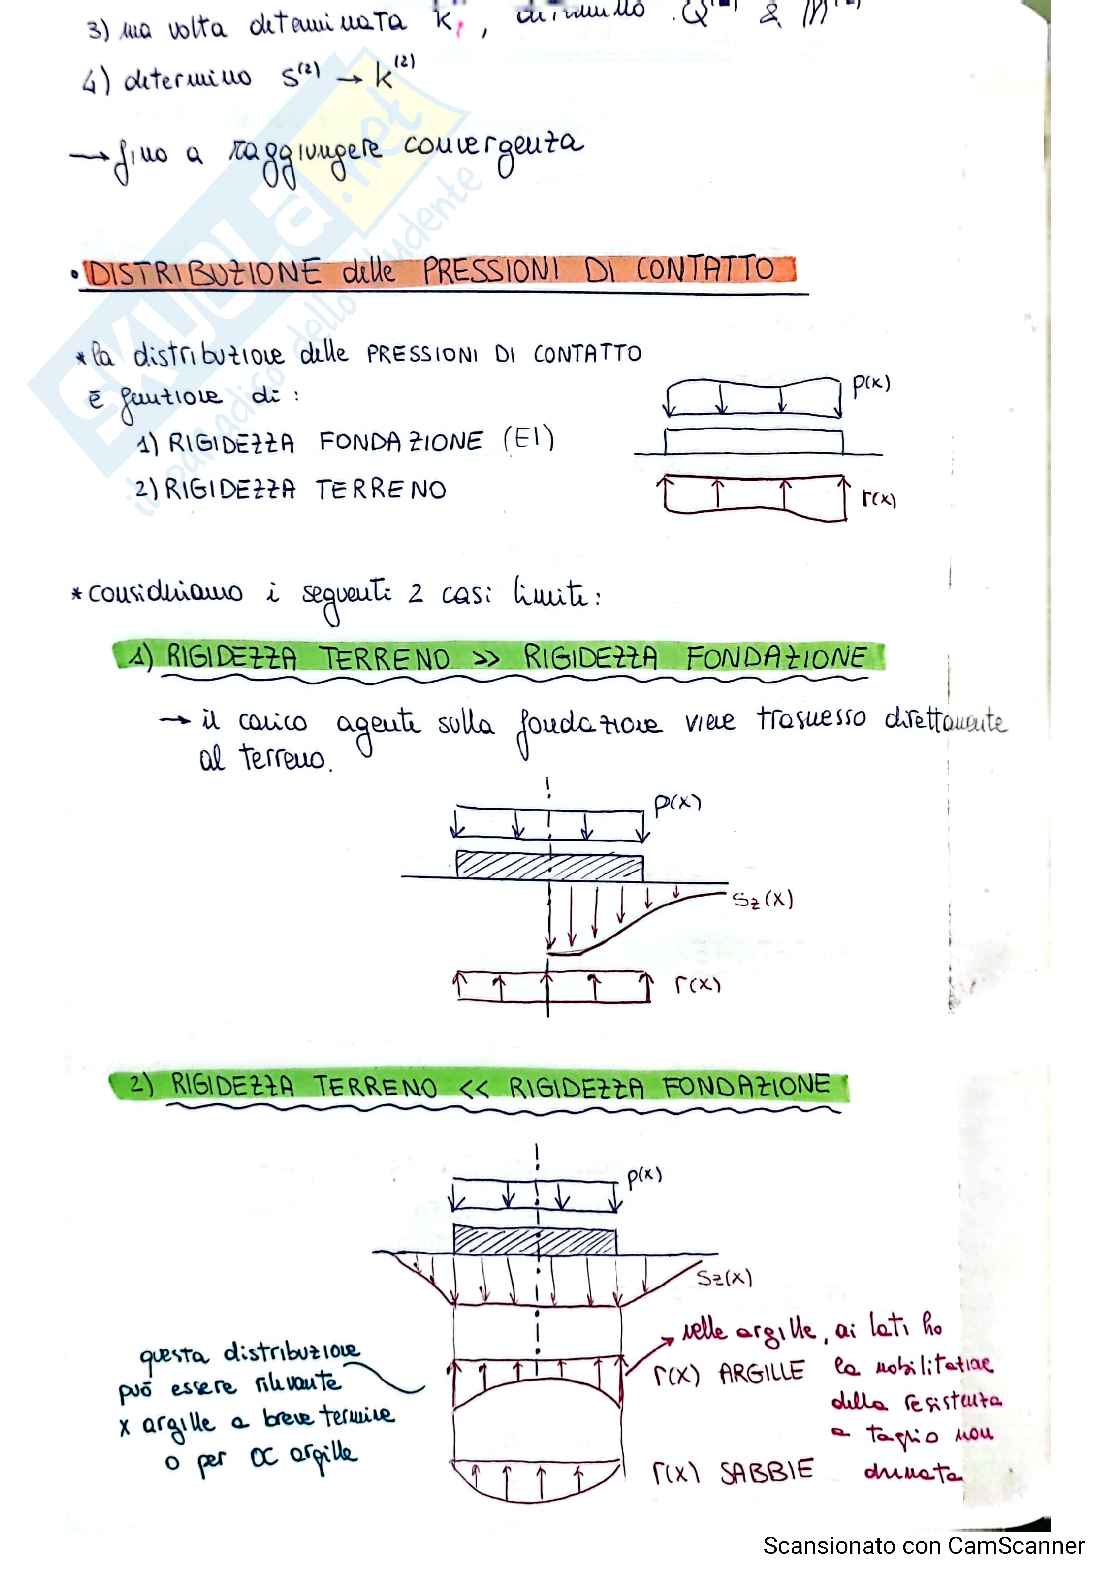 3) una volta determinata k , Q & M
4) determino s⁽²⁾ → k⁽²⁾
→ fino a raggiungere convergenza
• DISTRIBUZIONE delle PRESSIONI DI CONTATTO
* la distribuzione delle PRESSIONI DI CONTATTO
è funzione di :
1) RIGIDEZZA FONDAZIONE (EI)
2) RIGIDEZZA TERRENO
p(x)
r(x)
* consideriamo i seguenti 2 casi limite :
1) RIGIDEZZA TERRENO >> RIGIDEZZA FONDAZIONE
→ il carico agente sulla fondazione viene trasmesso direttamente
al terreno.
p(x)
Sz(x)
r(x)
2) RIGIDEZZA TERRENO << RIGIDEZZA FONDAZIONE
p(x)
Sz(x)
questa distribuzione
può essere rilevante
x argille a breve termine
o per OC argille
nelle argille, ai lati ho
la mobilitazione
della resistenza
a taglio non
drenata
r(x) ARGILLE
r(x) SABBIE
SKUOLA.net
il paradiso dello studente
Scansionato con CamScanner